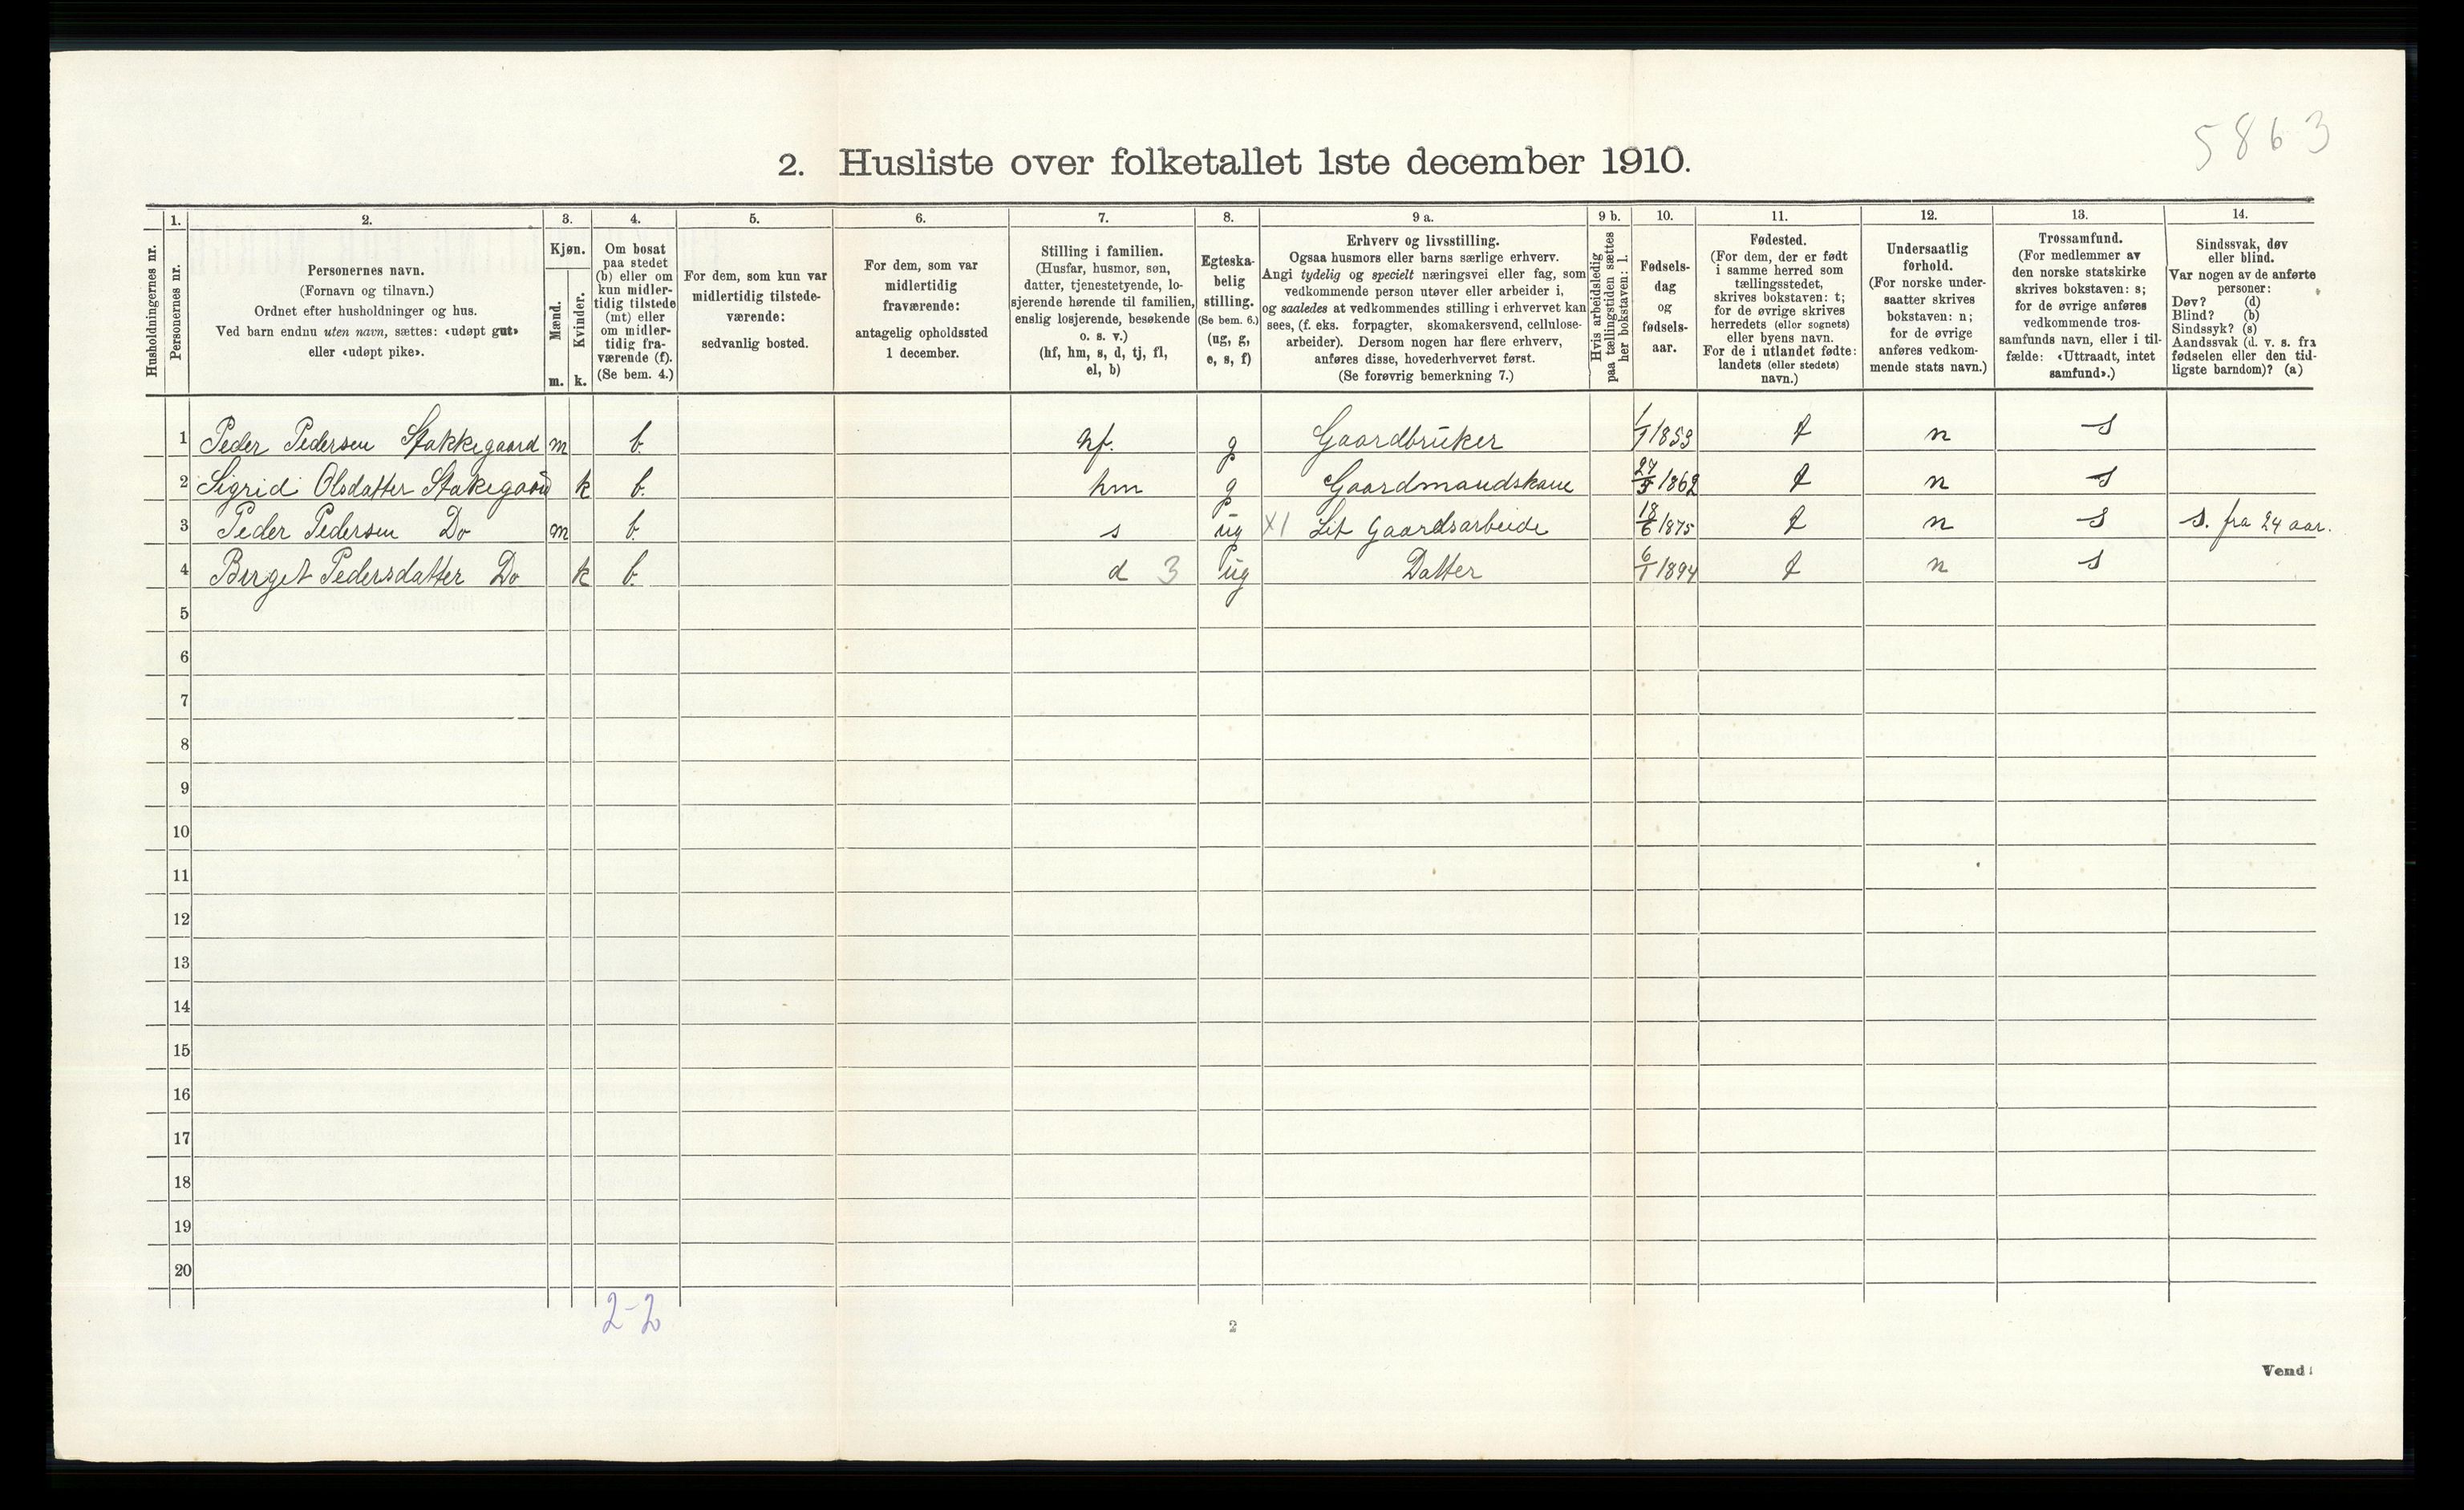 5863
2. Husliste over folketallet 1ste december 1910.
1. 2. 3. 4. 5. 6. 7. 8. 9 a. 9 b. 10. 11. 12. 13. 14.
Husholdningernes nr.
Personernes nr.
Personernes navn.
(Fornavn og tilnavn.)
Ordnet efter husholdninger og hus.
Ved barn endnu uten navn, sættes: «udøpt gut»
eller «udøpt pike».
Kjøn.
Mænd.
Kvinder.
m. k.
Om bosat
paa stedet
(b) eller om
kun midler-
tidig tilstede
(mt) eller
om midler-
tidig fra-
værende (f).
(Se bem. 4.)
For dem, som kun var
midlertidig tilstede-
værende:
sedvanlig bosted.
For dem, som var
midlertidig
fraværende:
antagelig opholdssted
1 december.
Stilling i familien.
(Husfar, husmor, søn,
datter, tjenestetyende, lo-
sjerende hørende til familien,
enslig losjerende, besøkende
o. s. v.)
(hf, hm, s, d, tj, fl,
el, b)
Egteska-
belig
stilling.
(Se bem. 6.)
(ug, g,
e, s, f)
Erhverv og livsstilling.
Ogsaa husmors eller barns særlige erhverv.
Angi tydelig og specielt næringsvei eller fag, som
vedkommende person utøver eller arbeider i,
og saaledes at vedkommendes stilling i erhvervet kan
sees, (f. eks. forpagter, skomakersvend, cellulose-
arbeider). Dersom nogen har flere erhverv,
anføres disse, hovederhvervet først.
(Se forøvrig bemerkning 7.)
Hvis arbeidsledig
paa tællingstiden sættes
her bokstaven: l.
Fødsels-
dag
og
fødsels-
aar.
Fødested.
(For dem, der er født
i samme herred som
tællingsstedet,
skrives bokstaven: t;
for de øvrige skrives
herredets (eller sognets)
eller byens navn.
For de i utlandet fødte:
landets (eller stedets)
navn.)
Undersaatlig
forhold.
(For norske under-
saatter skrives
bokstaven: n;
for de øvrige
anføres vedkom-
mende stats navn.)
Trossamfund.
(For medlemmer av
den norske statskirke
skrives bokstaven: s;
for de øvrige anføres
vedkommende tros-
samfunds navn, eller i til-
fælde: «Uttraadt, intet
samfund».)
Sindssvak, døv
eller blind.
Var nogen av de anførte
personer:
Døv? (d)
Blind? (b)
Sindssyk? (s)
Aandssvak (d. v. s. fra
fødselen eller den tid-
ligste barndom)? (a)
1 Peder Pedersen Stakkegaard m b. hf. g Gaardbruker 1/7 1853 t n s
2 Sigrid Olsdatter Stakegaard k b. hm g Gaardmandskone 27/5 1862 t n s
3 Peder Pedersen Do m b. s ug X1 Let Gaardsarbeide 18/6 1875 t n s s. fra 24 aar.
4 Birget Pedersdatter Do k b. d 3 ug Datter 6/1 1894 t n s
5
6
7
8
9
10
11
12
13
14
15
16
17
18
19
20
2-2
2
Vend!